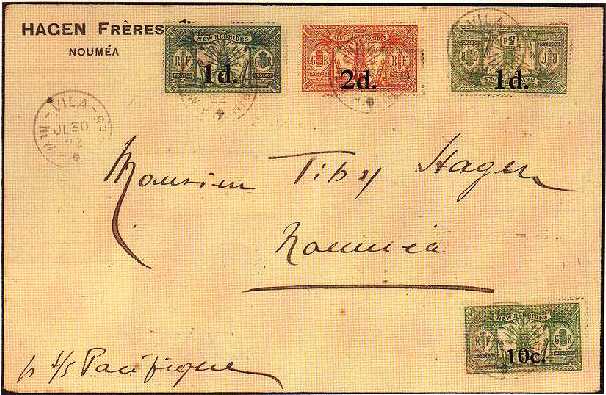 HAGEN FRÈRES
NOUMÉA
1d.
2d.
1d.
VILA
JL 30
Monsieur Tiby Hagen
Nouméa
10c.
p s/s Pacifique